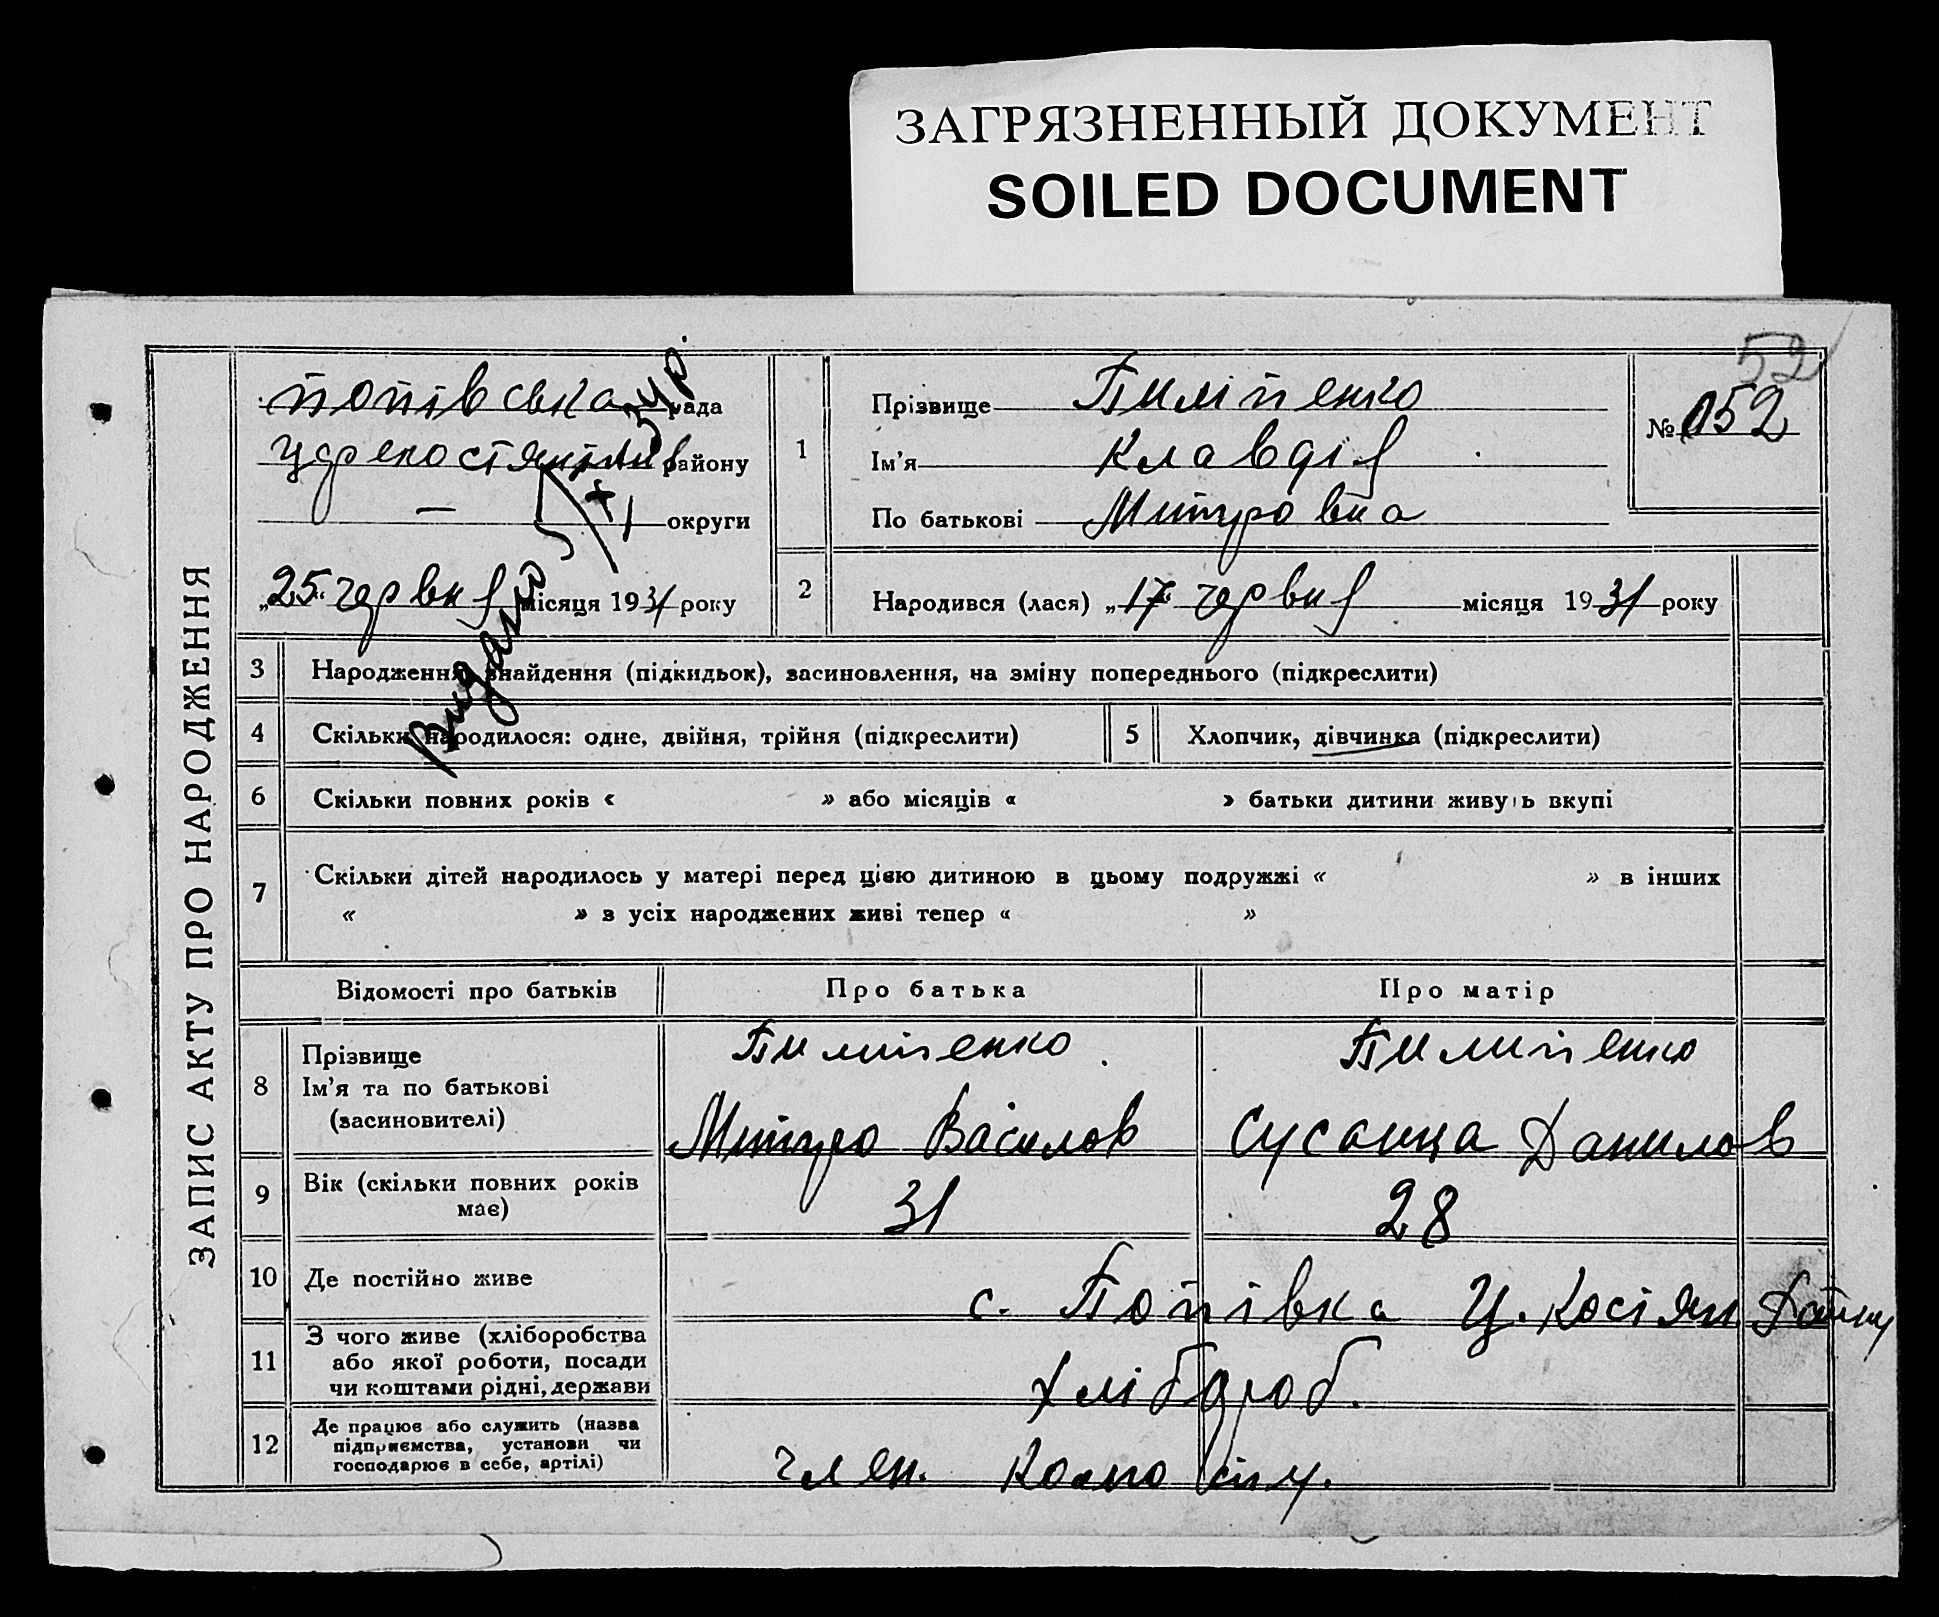 ЗАГРЯЗНЕННЫЙ ДОКУМЕНТ
SOILED DOCUMENT
52
ЗАПИС АКТУ ПРО НАРОДЖЕННЯ
Попівська рада
району
— округи
„25“ червня місяця 1931 року
Видано
1
Прізвище Пиліпенко
Ім'я Клавдія
По батькові Митровна
№ 052
2
Народився (лася) „17“ червня місяця 1931 року
3 Народження, знайдення (підкидьок), засиновлення, на зміну попереднього (підкреслити)
4 Скільки народилося: одне, двійня, трійня (підкреслити)
5 Хлопчик, дівчинка (підкреслити)
6 Скільки повних років « » або місяців « » батьки дитини живуть вкупі
7 Скільки дітей народилось у матері перед цією дитиною в цьому подружжі « » в інших
« » з усіх народжених живі тепер « »
Відомості про батьків Про батька Про матір
8 Прізвище
Ім'я та по батькові
(засиновителі)
Пилипенко
Митро Василов
Пилипенко
Сусанна Данилов
9 Вік (скільки повних років
має)
31 28
10 Де постійно живе с. Попівка Ц. Костян. району
11 З чого живе (хліборобства
або якої роботи, посади
чи коштами рідні, держави
хлібороб.
12 Де працює або служить (назва
підприємства, установи чи
господарює в себе, артілі)
член.